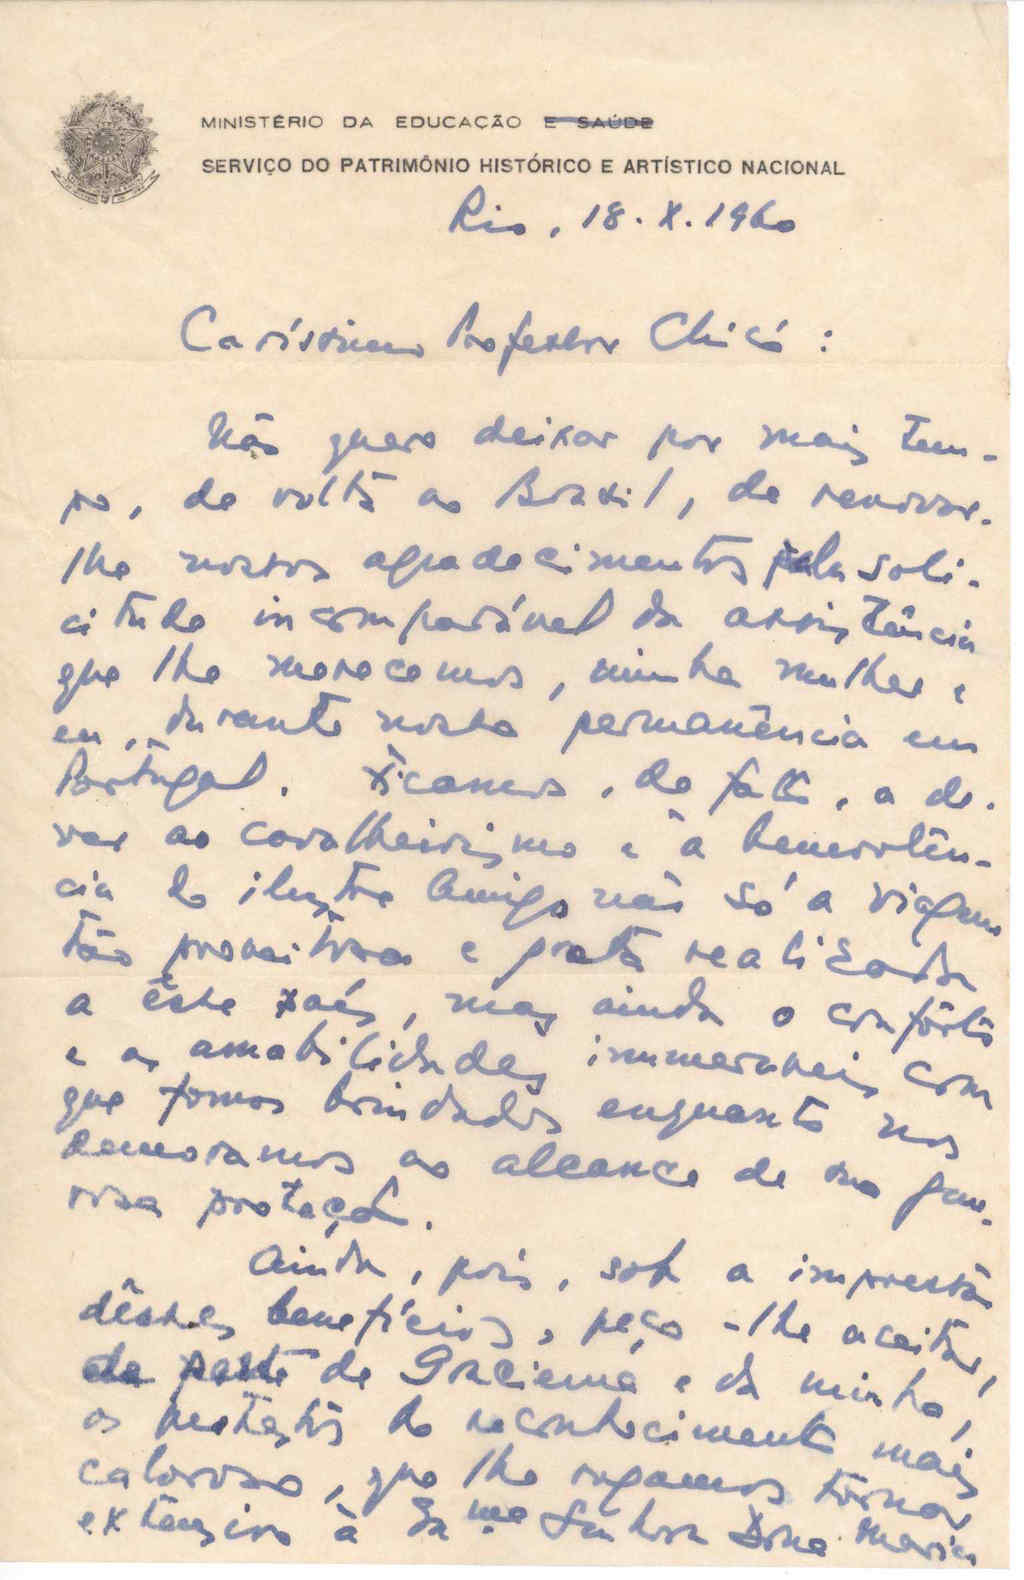 MINISTÉRIO DA EDUCAÇÃO E SAÚDE
SERVIÇO DO PATRIMÔNIO HISTÓRICO E ARTÍSTICO NACIONAL
Rio, 18.X.1960
Caríssimo Professor Chicó:
Não quero deixar por mais tem-
po, de volta ao Brasil, de renovar-
lhe nossos agradecimentos pela soli-
citude incomparável da assistência
que lhe merecemos, minha mulher e
eu, durante nossa permanência em
Portugal. Ficamos, de fato, a de-
ver ao cavalheirismo e à benevolên-
cia do ilustre Amigo não só a viagem
tão proveitosa e grata realizada
a êste país, mas ainda o confôrto
e as amabilidades inumeraveis com
que fomos brindados enquanto nos
demoramos ao alcance de sua gene-
rosa proteção.
Ainda, pois, sob a impressão
dêsses benefícios, peço-lhe aceitar,
da parte de Graciema e da minha,
os protestos do reconhecimento mais
caloroso, que lhe rogamos tornar
extensivo à Exma Senhora Dona Maria